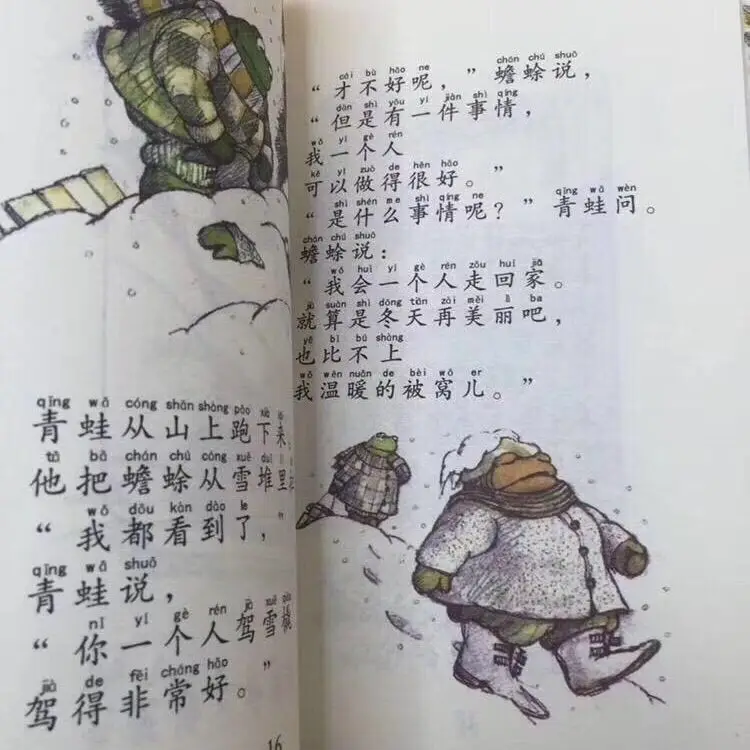 qīng wā cóng shān shàng pǎo xià
青蛙从山上跑下来,
tā bǎ chán chú cóng xuě duī
他把蟾蜍从雪堆里
wǒ dōu kàn dào le
“我都看到了,”
qīng wā shuō
青蛙说,
nǐ yí gè rén jià xuě
“你一个人驾雪橇
jià de fēi cháng hǎo
驾得非常好。”
16
cái bù hǎo ne chán chú shuō
“才不好呢,”蟾蜍说,
dàn shì yǒu yí jiàn shì qíng
“但是有一件事情,
wǒ yí gè rén
我一个人
kě yǐ zuò de hěn hǎo
可以做得很好。”
shì shén me shì qíng ne qīng wā wèn
“是什么事情呢?”青蛙问。
chán chú shuō
蟾蜍说:
wǒ huì yí gè rén zǒu huí jiā
“我会一个人走回家。
jiù suàn shì dōng tiān zài měi lì ba
就算是冬天再美丽吧,
yě bǐ bú shàng
也比不上
wǒ wēn nuǎn de bèi wō er
我温暖的被窝儿。”